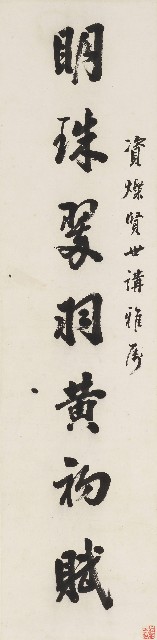 資燦賢世講雅屬
明珠翠羽黃初賦